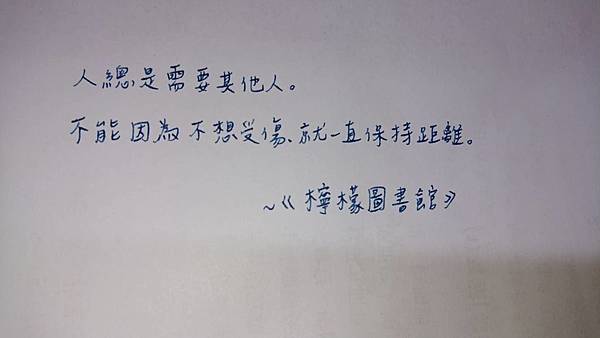 人總是需要其他人。
不能因為不想受傷、就一直保持距離。
~《檸檬圖書館》